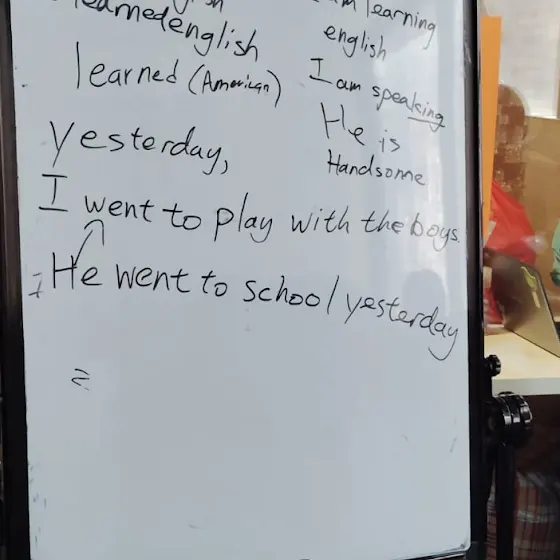 learnedenglish
learned (American)
yesterday,
I went to play with the boys.
He went to school yesterday
am learning
english
I am speaking
He is
Handsome